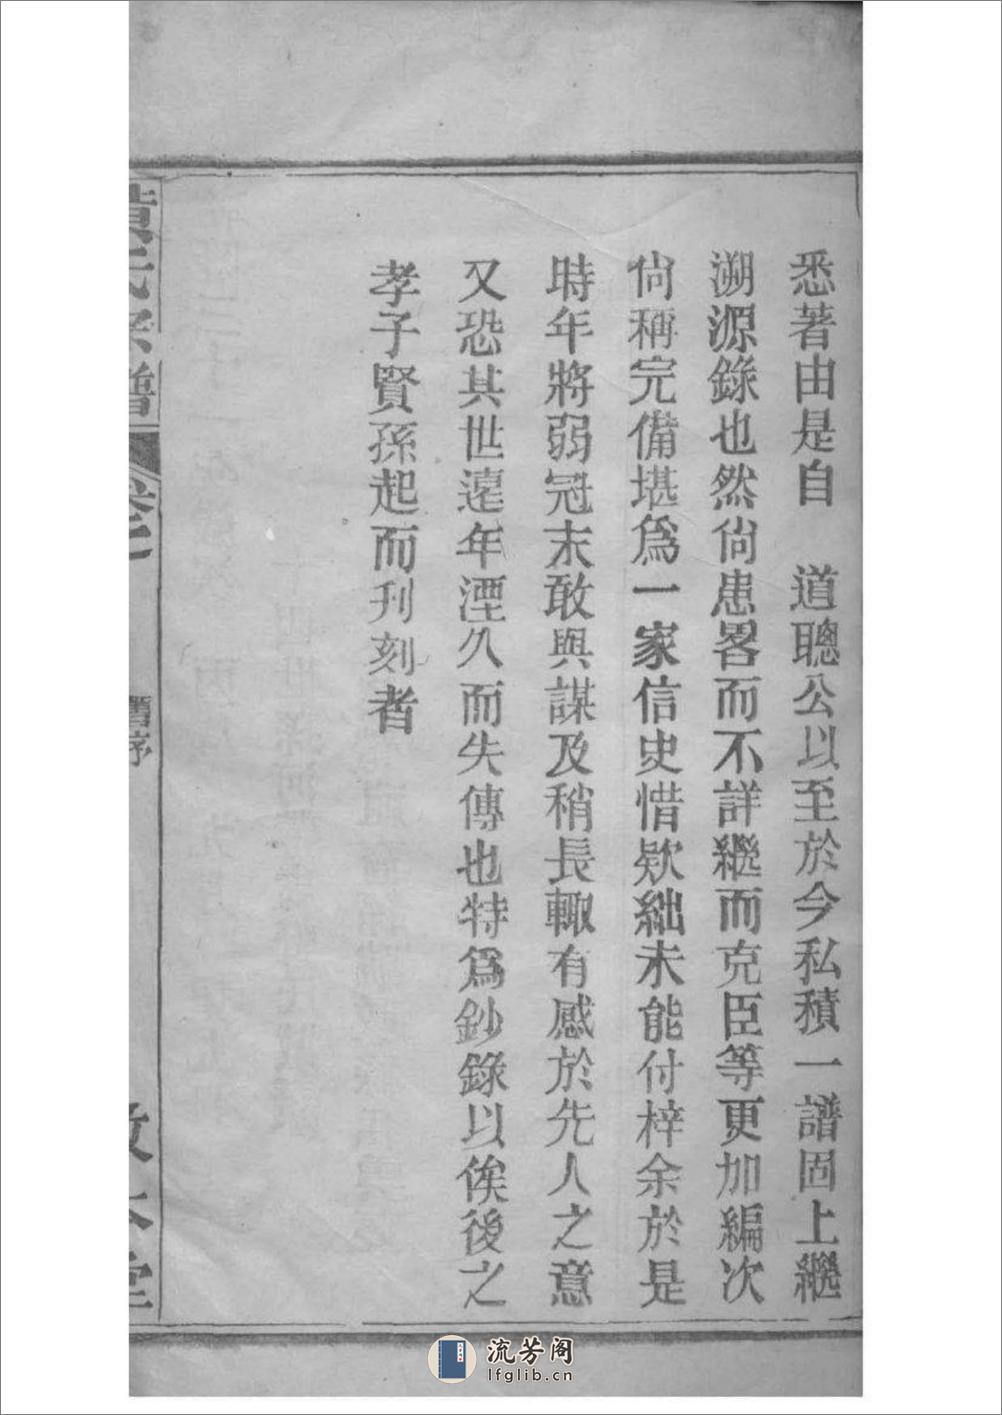 悉著由是自　道聰公以至於今私積一譜固上繼
溯源錄也然尙患畧而不詳繼而克臣等更加編次
尙稱完備堪爲一家信史惜欵絀未能付梓余於是
時年將弱冠末敢與謀及稍長輙有感於先人之意
又恐其世遠年湮久而失傳也特爲鈔錄以俟後之
孝子賢孫起而刊刻者
黃氏宗譜
舊序
流芳阁
lfglib.cn